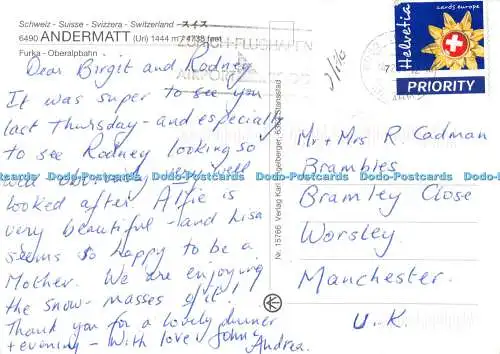 Schweiz - Suisse - Svizzera - Switzerland - スイス
6490 ANDERMATT (Uri) 1444 m / 4738 feet
Furka - Oberalpbahn
ZÜRICH-FLUGHAFEN
AIRPORT
Dear Birgit and Rodney
It was super to see you
last Thursday - and especially
to see Rodney looking so
well obviously
looked after Alfie is
very beautiful - and Lisa
seems so happy to be a
Mother. We are enjoying
the snow - masses of it!
Thank you for a lovely dinner
+ evening - With love John +
Andrea.
Nr. 15766 Verlag Karl Engelberger, 6362 Stansstad
Helvetia
cards europe
PRIORITY
Mr + Mrs R. Cadman
Brambles
Bramley Close
Worsley
Manchester.
U.K.
Dodo-Postcards Dodo-Postcards Dodo-Postcards Dodo-Postcards Dodo-Postcards
Dodo-Postcards Dodo-Postcards Dodo-Postcards Dodo-Postcards Dodo-Postcards
Dodo-Postcards Dodo-Postcards Dodo-Postcards Dodo-Postcards Dodo-Postcards